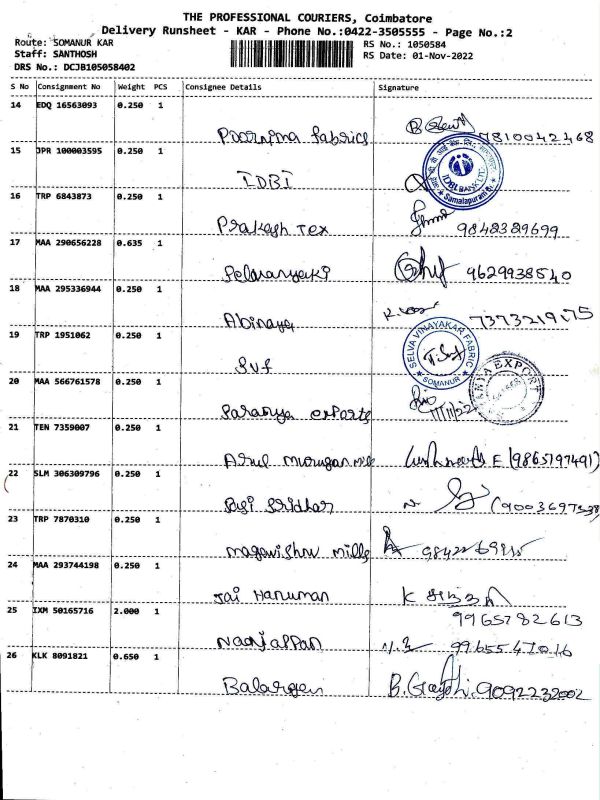 THE PROFESSIONAL COURIERS, Coimbatore
Delivery Runsheet - KAR - Phone No.:0422-3505555 - Page No.:2
Route: SOMANUR KAR
RS No.: 1050584
Staff: SANTHOSH
RS Date: 01-Nov-2022
DRS No.: DCJB105058402
S No Consignment No Weight PCS Consignee Details Signature
14 EDQ 16563093 0.250 1
Poornima fabrics 7810042468
15 JPR 100003595 0.250 1
IDBI
IDBI BANK LTD.
Samalapuram
16 TRP 6843873 0.250 1
Prakash Tex 9848389699
17 MAA 290656228 0.635 1
9629938540
18 MAA 295336944 0.250 1
Abinaya 7373219175
19 TRP 1951062 0.250 1
SVF
SELVA VINAYAKAR FABRIC
SOMANUR
20 MAA 566761578 0.250 1
Saranya exports 1/11/22
21 TEN 7359007 0.250 1
Arul murugan mills E (9865197491)
22 SLM 306309796 0.250 1
Sridhar
23 TRP 7870310 0.250 1
mills
24 MAA 293744198 0.250 1
Jai Hanuman K
9965782613
25 IXM 50165716 2.000 1
Nanjappan
26 KLK 8091821 0.650 1
9092232002